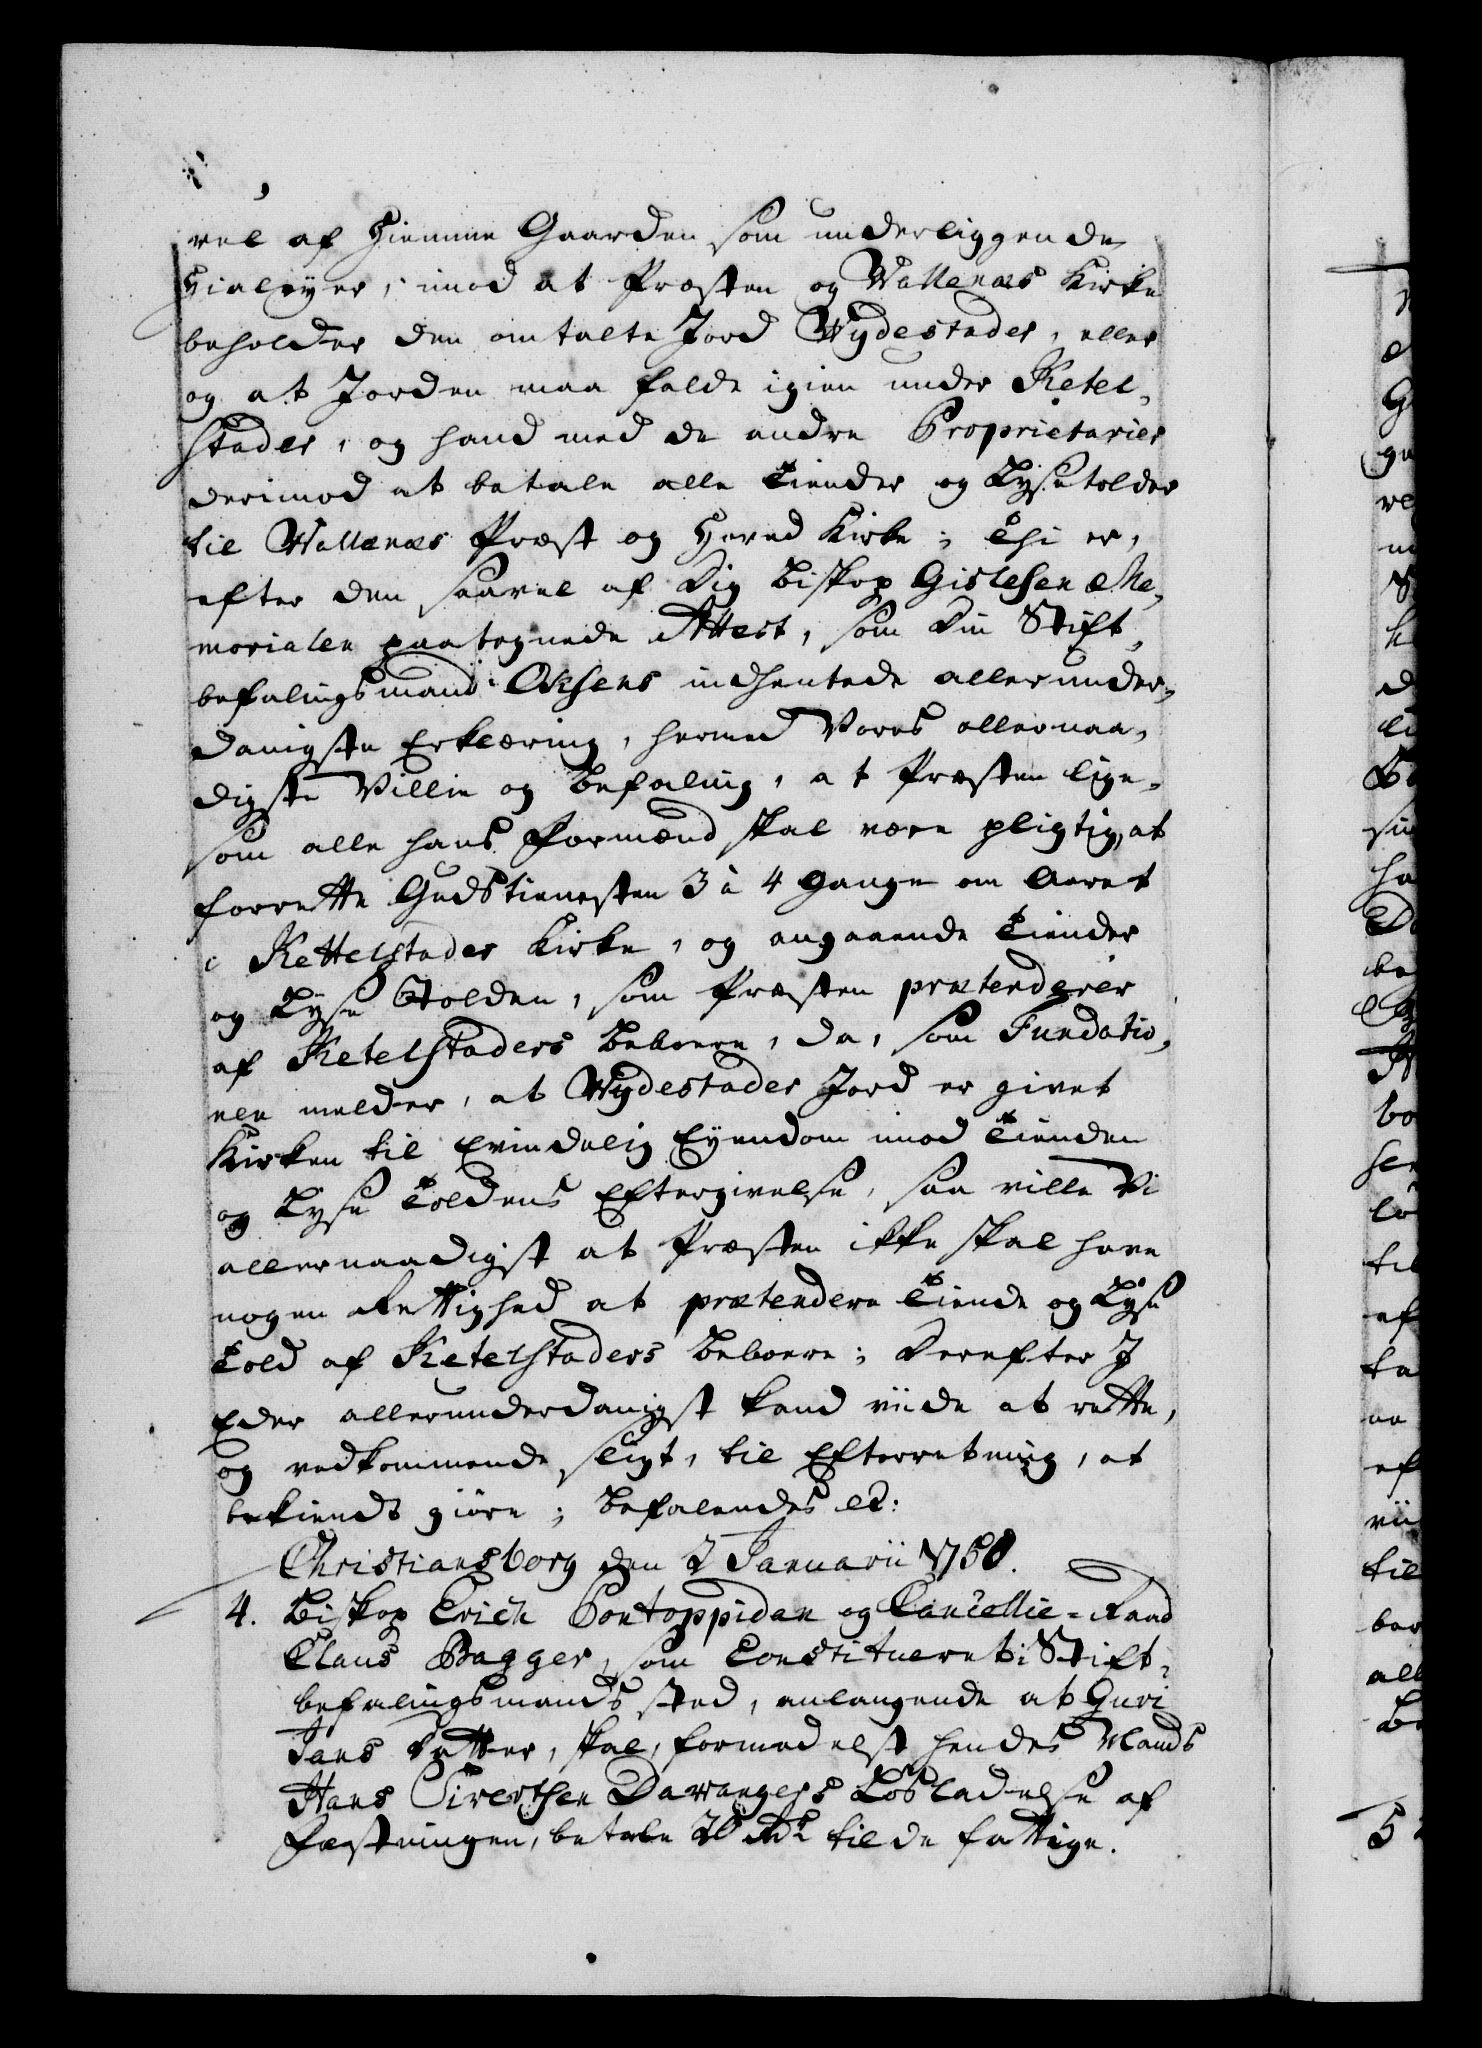 vel af Hiemme Gaarden som underliggende
Hialeyer, imod at Præsten og Wallenæs Kirke
beholder den omtalte Jord Wydestader, eller
og at Jorden maa falde igien under Ketel-
stader, og hand med de andre Proprietarier
derimod at betale alle Tiender og Lysetolder
til Wallenæs Præst og Hered Kirke; Thi er,
efter den saavel af Dig Biskop Gislesen Me-
morialen paategnede Attest, som Din Stift-
befalingsmand Oksens indhentede allerunder-
danigste Erklæring, hermed Vores allernaa-
digste Villie og Befaling, at Præsten lige-
som alle hans Formænd skal være pligtig, at
forrette Gudstienesten 3 à 4 Gange om Aaret
i Kettelstader Kirke, og angaaende Tiender
og Lyse Tolden, som Præsten prætenderer
af Ketelstaders Beboere, da, som Fundatio-
nen melder, at Wydestader Jord er givet
Kirken til Evindelig Eyendom imod Tienden
og Lyse Toldens Eftergivelse, saa ville Vi
allernaadigst at Præsten ikke skal have
nogen Rettighed at prætendere Tiende og Lyse
Told af Ketelstaders Beboere; Derefter I
Eder allerunderdanigst kand viide at rette,
og vedkommende sligt, til Efterretning, at
bekiendtgiøre; Befalendes etc:
Christiansborg den 2 Januarii 1750.
4. Biskop Erich Pontoppidan og Cancellie-Raad
Claus Bagger, som Constitueret i Stift-
befalingsmands sted, anlangende at Guri
Jans Datter, skal, formedelst hendes Mands
Hans Sivertsen Davangers Løsladelse af
Fæstningen, betale 20 Rdr til de fattige.